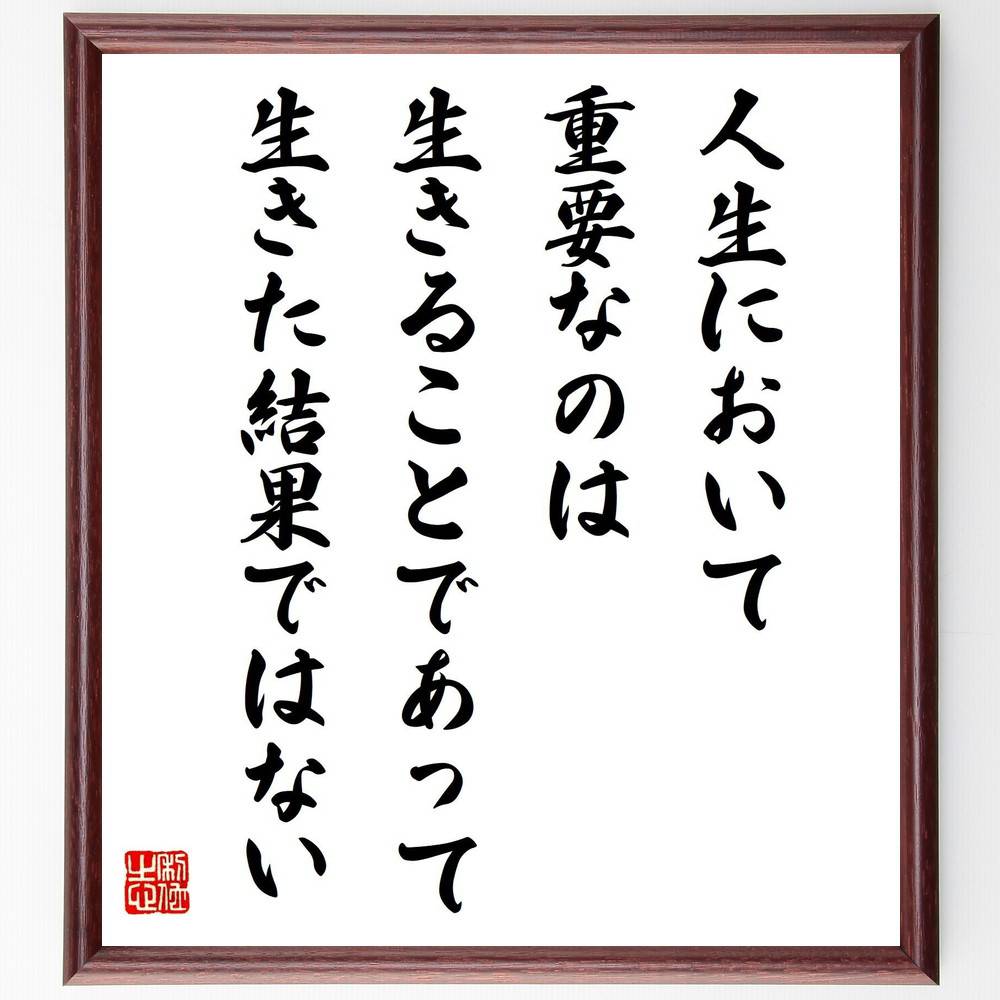 人生において
重要なのは
生きることであって
生きた結果ではない